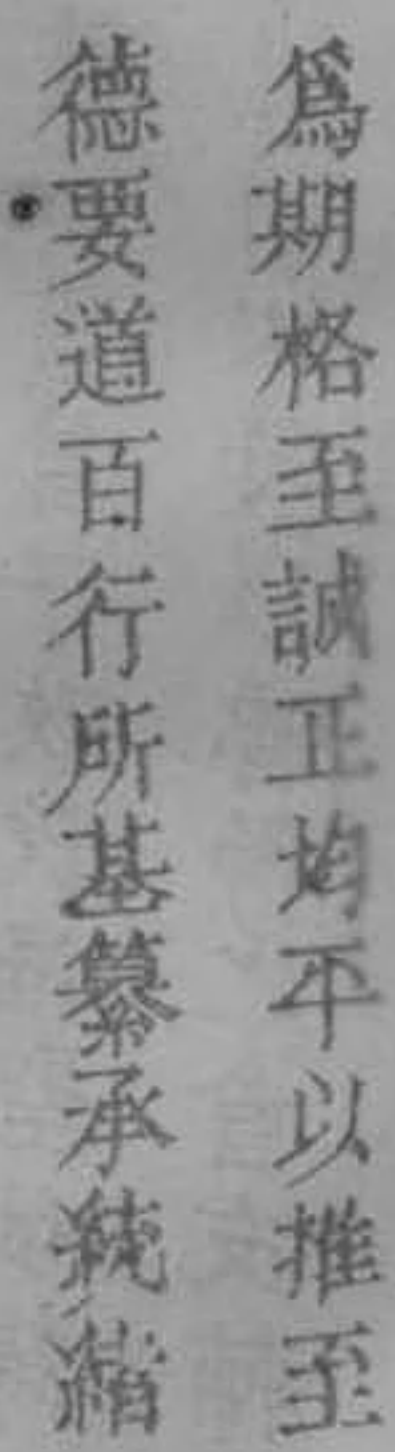 爲期格至誠正均平以推至
德要道百行所基纂承統緒